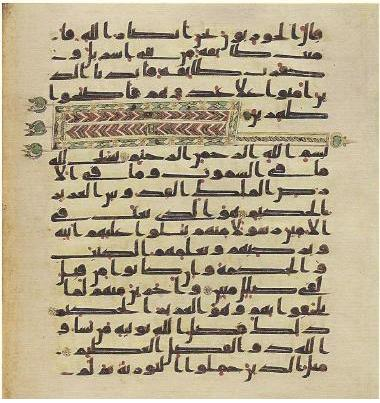 قال الحواريون نحن انصار الله فا
منت طائفة من بني اسرايل و
كفرت طائفة فايدنا الذ
ين امنوا على عدوهم فاصبحوا
ظهرين
بسم الله الرحمن الرحيم يسبح لله
ما في السموت وما في الا
رض الملك القدوس العزيز
الحكيم هو الذي بعث في
الامين رسولا منهم يتلوا عليهم ايته
ويزكيهم ويعلمهم الكتب
والحكمة وان كانوا من قبل
لفي ضلل مبين واخرين منهم لما
يلحقوا بهم وهو العزيز الحكيم
ذلك فضل الله يوتيه من يشا و
الله ذو الفضل العظيم
مثل الذين حملوا التورية ثم لم